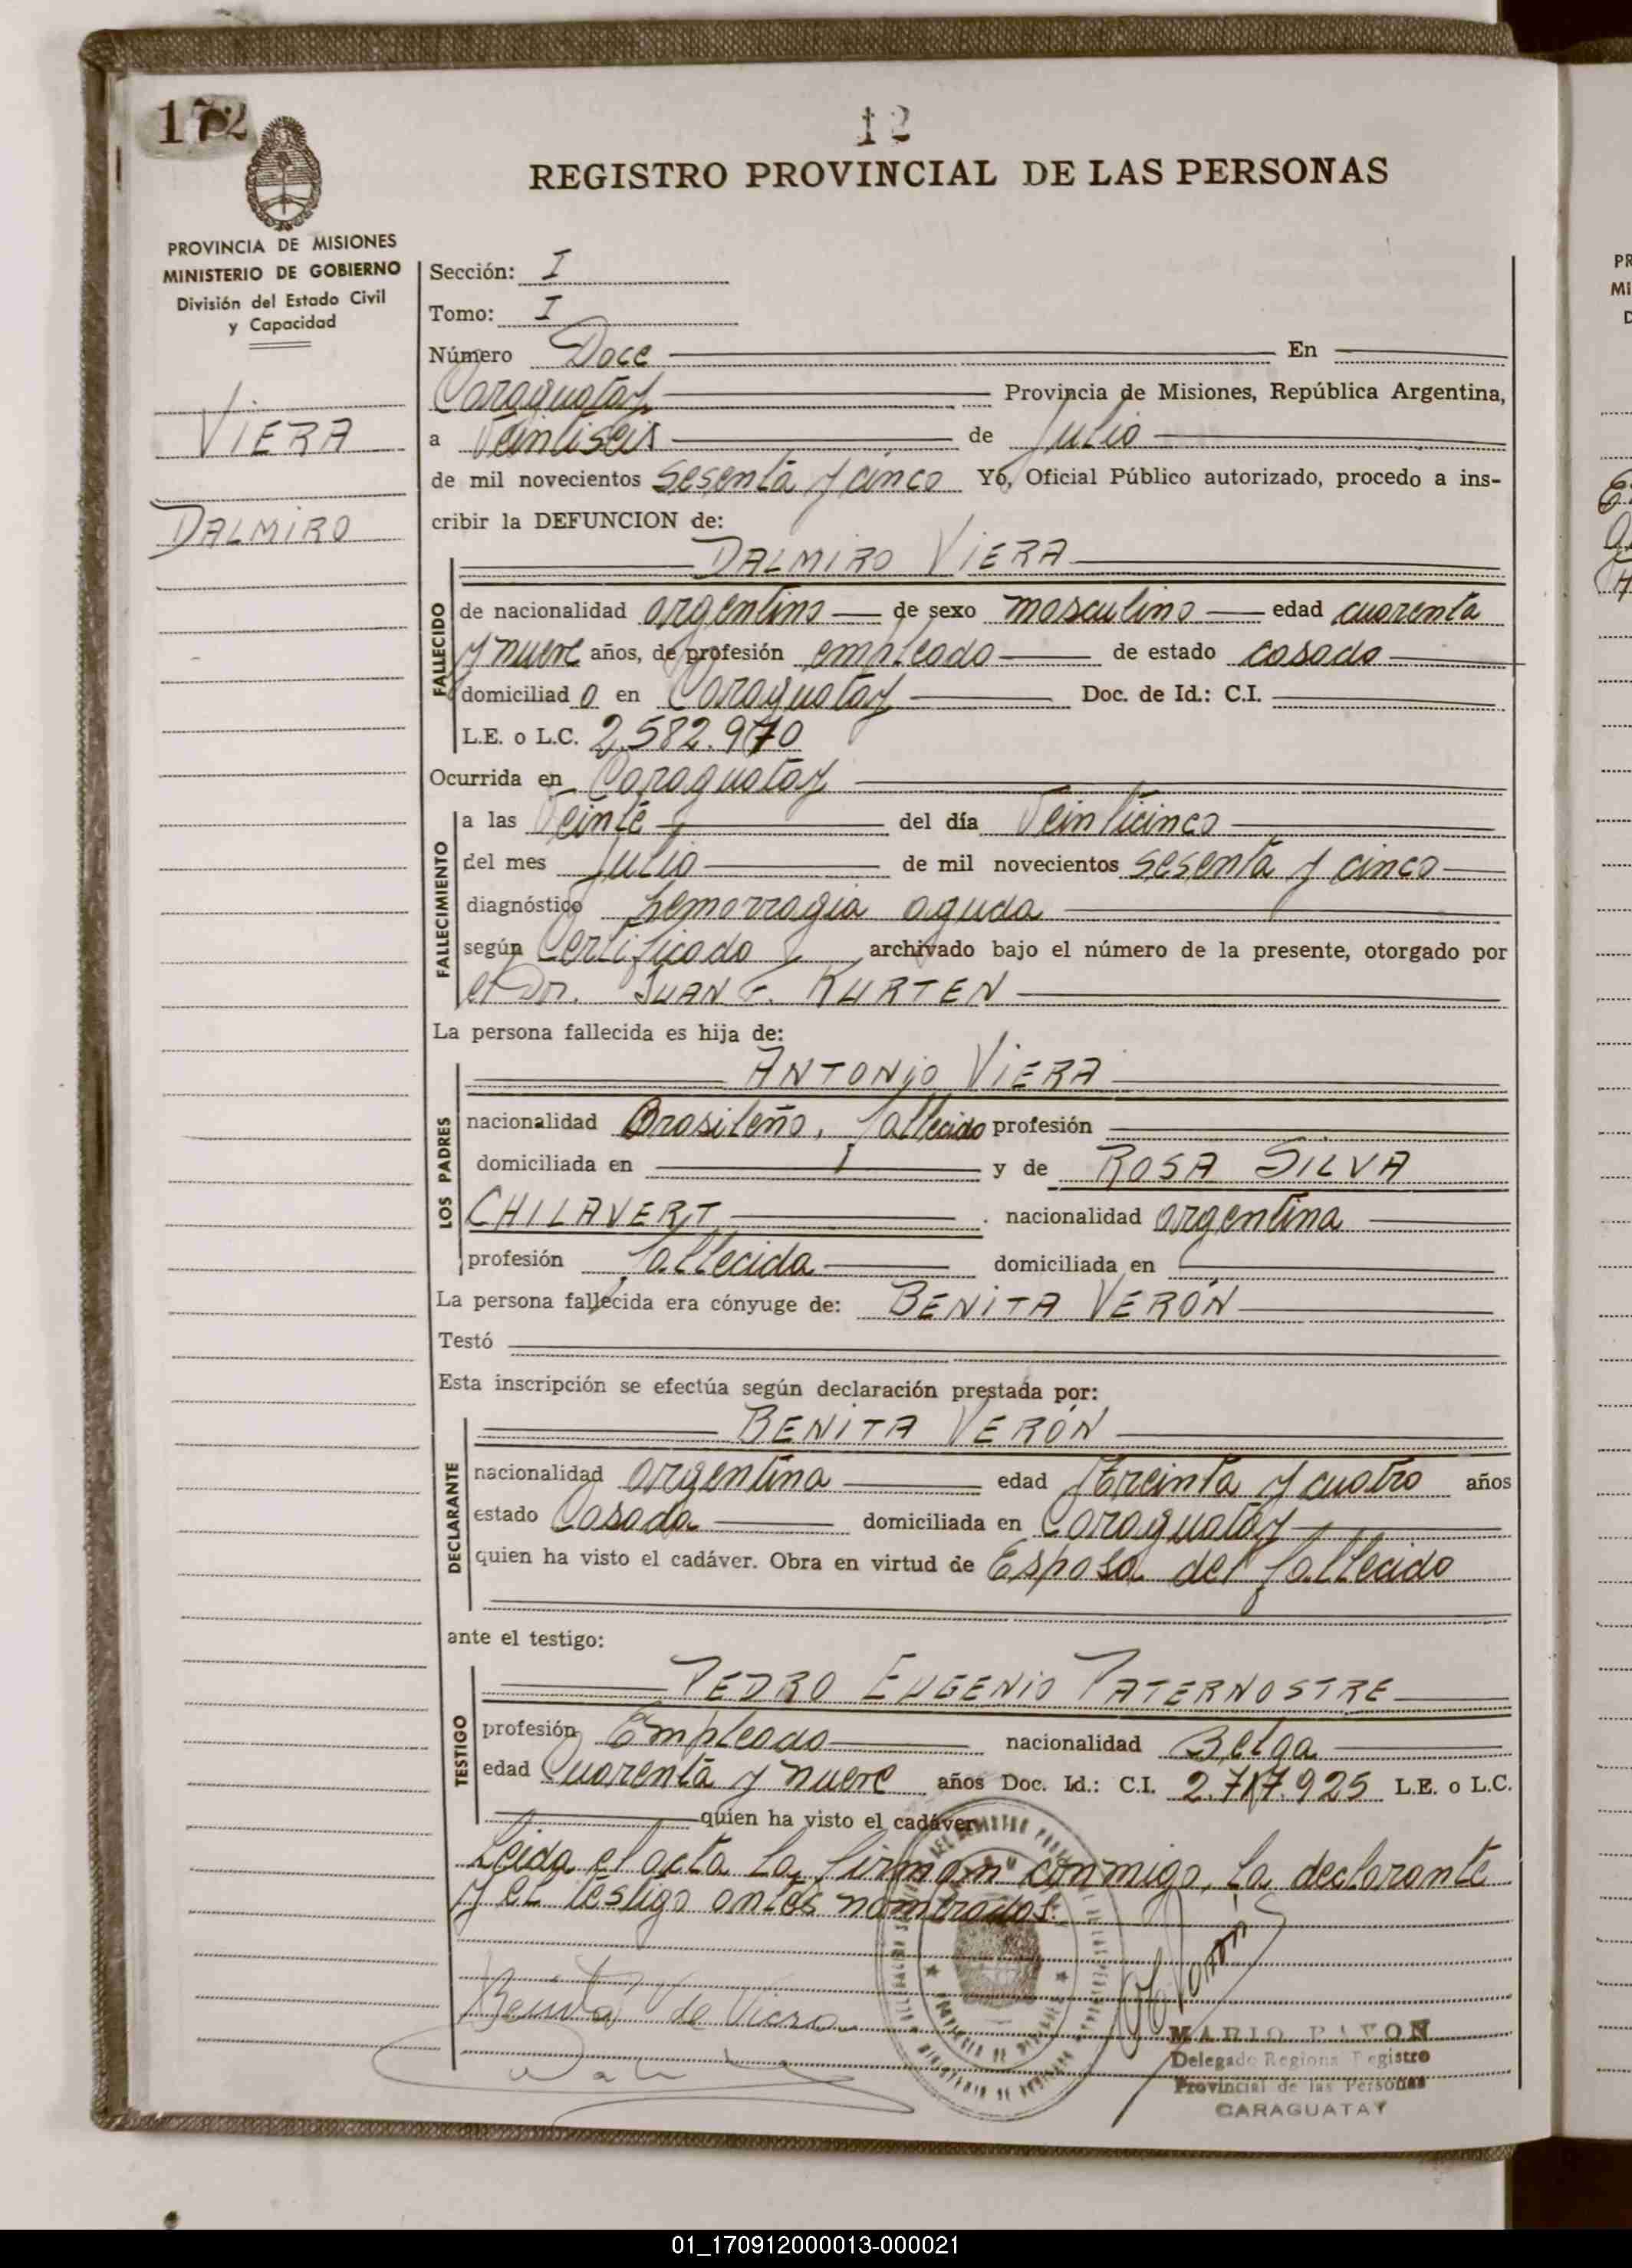 172
12
REGISTRO PROVINCIAL DE LAS PERSONAS
PROVINCIA DE MISIONES
MINISTERIO DE GOBIERNO
División del Estado Civil
y Capacidad
VIERA
DALMIRO
Sección: I
Tomo: I
Número Doce En
Caraguatay Provincia de Misiones, República Argentina,
a Veintiseis de Julio
de mil novecientos sesenta y cinco Yo, Oficial Público autorizado, procedo a ins-
cribir la DEFUNCION de:
DALMIRO VIERA
FALLECIDO
de nacionalidad argentino de sexo masculino edad cuarenta
y nueve años, de profesión empleado de estado casado
domiciliad o en Caraguatay Doc. de Id.: C.I.
L.E. o L.C. 2.582.970
Ocurrida en Caraguatay
FALLECIMIENTO
a las Veinte del día Veinticinco
del mes Julio de mil novecientos sesenta y cinco
diagnóstico hemorragia aguda
según Certificado archivado bajo el número de la presente, otorgado por
el Dr. JUAN F. KURTEN
La persona fallecida es hija de:
LOS PADRES
ANTONIO VIERA
nacionalidad Brasileño, fallecido profesión
domiciliada en y de ROSA SILVA
CHILAVERT. nacionalidad argentina
profesión fallecida domiciliada en
La persona fallecida era cónyuge de: BENITA VERÓN
Testó
Esta inscripción se efectúa según declaración prestada por:
DECLARANTE
BENITA VERÓN
nacionalidad argentina edad treinta y cuatro años
estado Casada domiciliada en Caraguatay
quien ha visto el cadáver. Obra en virtud de Esposa del fallecido
ante el testigo:
TESTIGO
PEDRO EUGENIO PATERNOSTRE
profesión Empleado nacionalidad Belga
edad Cuarenta y nueve años Doc. Id.: C.I. 2.717.925 L.E. o L.C.
quien ha visto el cadáver
Leida el acta la firman conmigo, la declarante
y el testigo antes nombrados.
Benita V de Viera
MARIO PAVON
Delegado Regional Registro
Provincial de las Personas
CARAGUATAY
01_170912000013-000021